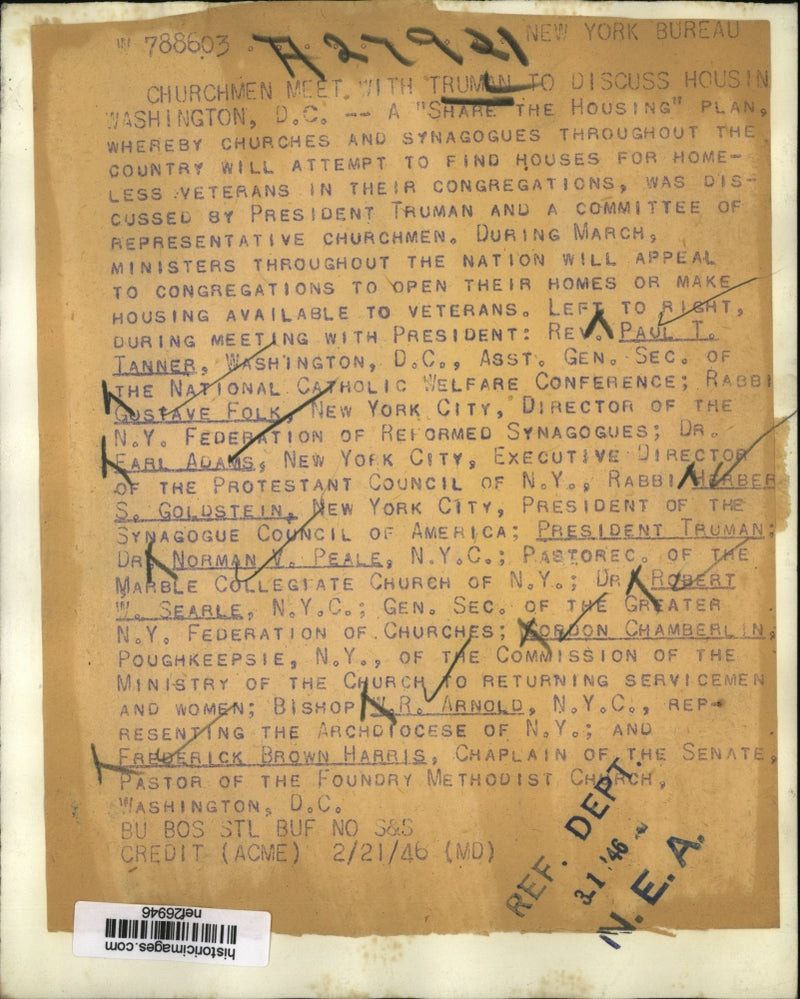 W 788603 . NEW YORK BUREAU
A27921
CHURCHMEN MEET WITH TRUMAN TO DISCUSS HOUSIN
WASHINGTON, D.C. -- A "SHARE THE HOUSING" PLAN,
WHEREBY CHURCHES AND SYNAGOGUES THROUGHOUT THE
COUNTRY WILL ATTEMPT TO FIND HOUSES FOR HOME-
LESS VETERANS IN THEIR CONGREGATIONS, WAS DIS-
CUSSED BY PRESIDENT TRUMAN AND A COMMITTEE OF
REPRESENTATIVE CHURCHMEN. DURING MARCH,
MINISTERS THROUGHOUT THE NATION WILL APPEAL
TO CONGREGATIONS TO OPEN THEIR HOMES OR MAKE
HOUSING AVAILABLE TO VETERANS. LEFT TO RIGHT,
DURING MEETING WITH PRESIDENT: REV. PAUL T.
TANNER, WASHINGTON, D.C., ASST. GEN. SEC. OF
THE NATIONAL CATHOLIC WELFARE CONFERENCE; RABBI
GUSTAVE FOLK, NEW YORK CITY, DIRECTOR OF THE
N.Y. FEDERATION OF REFORMED SYNAGOGUES; DR.
EARL ADAMS, NEW YORK CITY, EXECUTIVE DIRECTOR
OF THE PROTESTANT COUNCIL OF N.Y., RABBI HERBER
S. GOLDSTEIN, NEW YORK CITY, PRESIDENT OF THE
SYNAGOGUE COUNCIL OF AMERICA; PRESIDENT TRUMAN;
DR. NORMAN V. PEALE, N.Y.C.; PASTOREC. OF THE
MARBLE COLLEGIATE CHURCH OF N.Y.; DR. ROBERT
W. SEARLE, N.Y.C.; GEN. SEC. OF THE GREATER
N.Y. FEDERATION OF CHURCHES; GORDON CHAMBERLIN,
POUGHKEEPSIE, N.Y., OF THE COMMISSION OF THE
MINISTRY OF THE CHURCH TO RETURNING SERVICEMEN
AND WOMEN; BISHOP W.R. ARNOLD, N.Y.C., REP-
RESENTING THE ARCHDIOCESE OF N.Y.; AND
FREDERICK BROWN HARRIS, CHAPLAIN OF THE SENATE,
PASTOR OF THE FOUNDRY METHODIST CHURCH,
WASHINGTON, D.C.
BU BOS STL BUF NO S&S
CREDIT (ACME) 2/21/46 (MD)
REF. DEPT.
21 '46
N. E. A.
historicimages.com
nef26946